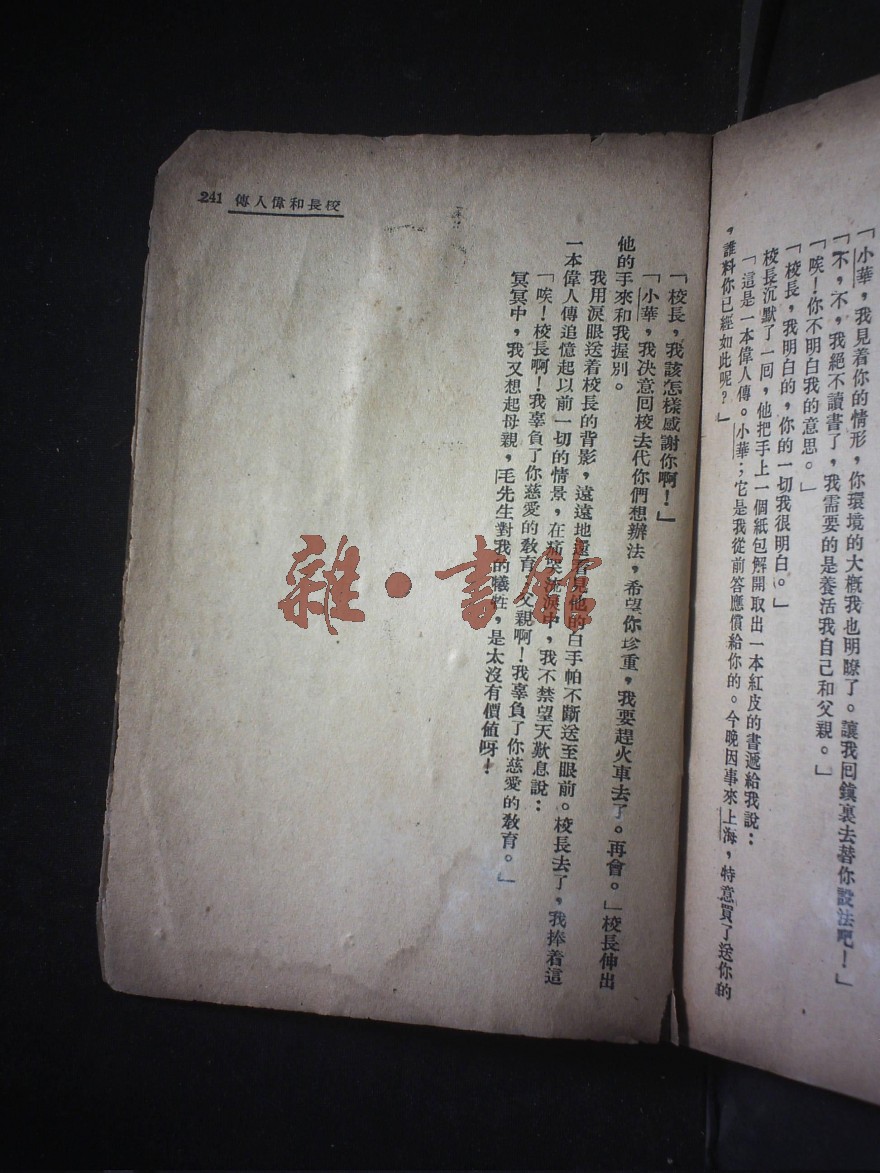 「小華，我見着你的情形，你環境的大槪我也明瞭了。讓我回鎮裏去替你設法吧！」
「不，不，我絕不讀書了，我需要的是養活我自己和父親。」
「唉！你不明白我的意思。」
「校長，我明白的，你的一切我很明白。」
校長沉默了一回，他把手上一個紙包解開取出一本紅皮的書遞給我說：
「這是一本偉人傳。小華；它是我從前答應償給你的。今晚因事來上海，特意買了送你的
，誰料你已經如此呢？」
「校長，我該怎樣感謝你啊！」
「小華，我決意回校去代你們想辦法，希望你珍重，我要趕火車去了。再會。」校長伸出
他的手來和我握別。
我用淚眼送着校長的背影，遠遠地還看見他的白手帕不斷送至眼前。校長去了，我捧着這
一本偉人傳追憶起以前一切的情景，在痛哭流淚中，我不禁望天歎息說：
「唉！校長啊！我辜負了你慈愛的敎育，父親啊！我辜負了你慈愛的敎育。」
冥冥中，我又想起母親，毛先生對我的犧牲，是太沒有價値呀！
241 傳人偉和長校
雜·書館